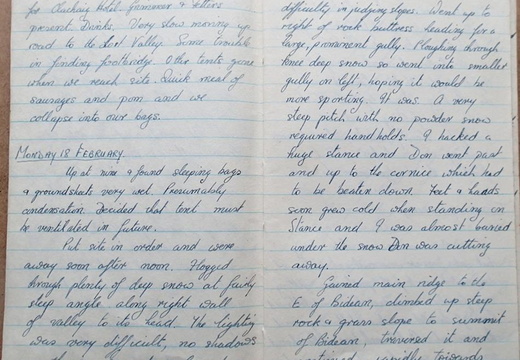 for Clachaig Hotel. Grimmer & Fetters
present. Drinks. Very slow moving up
road to the Lost Valley. Some trouble
in finding footbridge. Other tents gone
when we reach site. Quick meal of
sausages and pom and we
collapse into our bags.
MONDAY 18 FEBRUARY.
Up at nine & found sleeping bags
& groundsheets very wet. Presumably
condensation. Decided that tent must
be ventilated in future.
Put site in order and were
away soon after noon. Flogged
through plenty of deep snow at fairly
steep angle along right wall
of valley to its head. The lighting
was very difficult, no shadows
difficulty in judging slopes. Went up to
right of rock buttress heading for a
large, prominent gully. Ploughing through
knee deep snow so went into smaller
gully on left, hoping it would be
more sporting. It was. A very
steep pitch with no powder snow
required handholds. I hacked a
huge stance and Don went past
and up to the cornice which had
to be beaten down. Feet & hands
soon grew cold when standing on
stance and I was almost buried
under the snow Don was cutting
away.
Gained main ridge to the
E of Bidean, climbed up steep
rock & grass slope to summit
of Bidean, traversed it and
rapidly towards